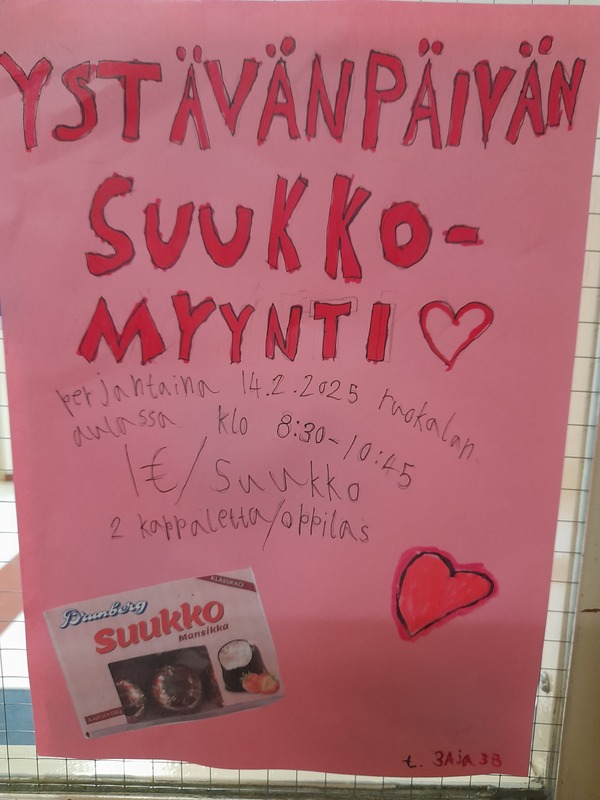 YSTÄVÄNPÄIVÄN
SUUKKO-
MYYNTI
perjantaina 14.2.2025 ruokalan
aulassa klo 8:30-10:45
1€/suukko
2 kappaletta/oppilas
KLASSIKKO
Brunberg
suukko
Mansikka
t. 3A ja 3B